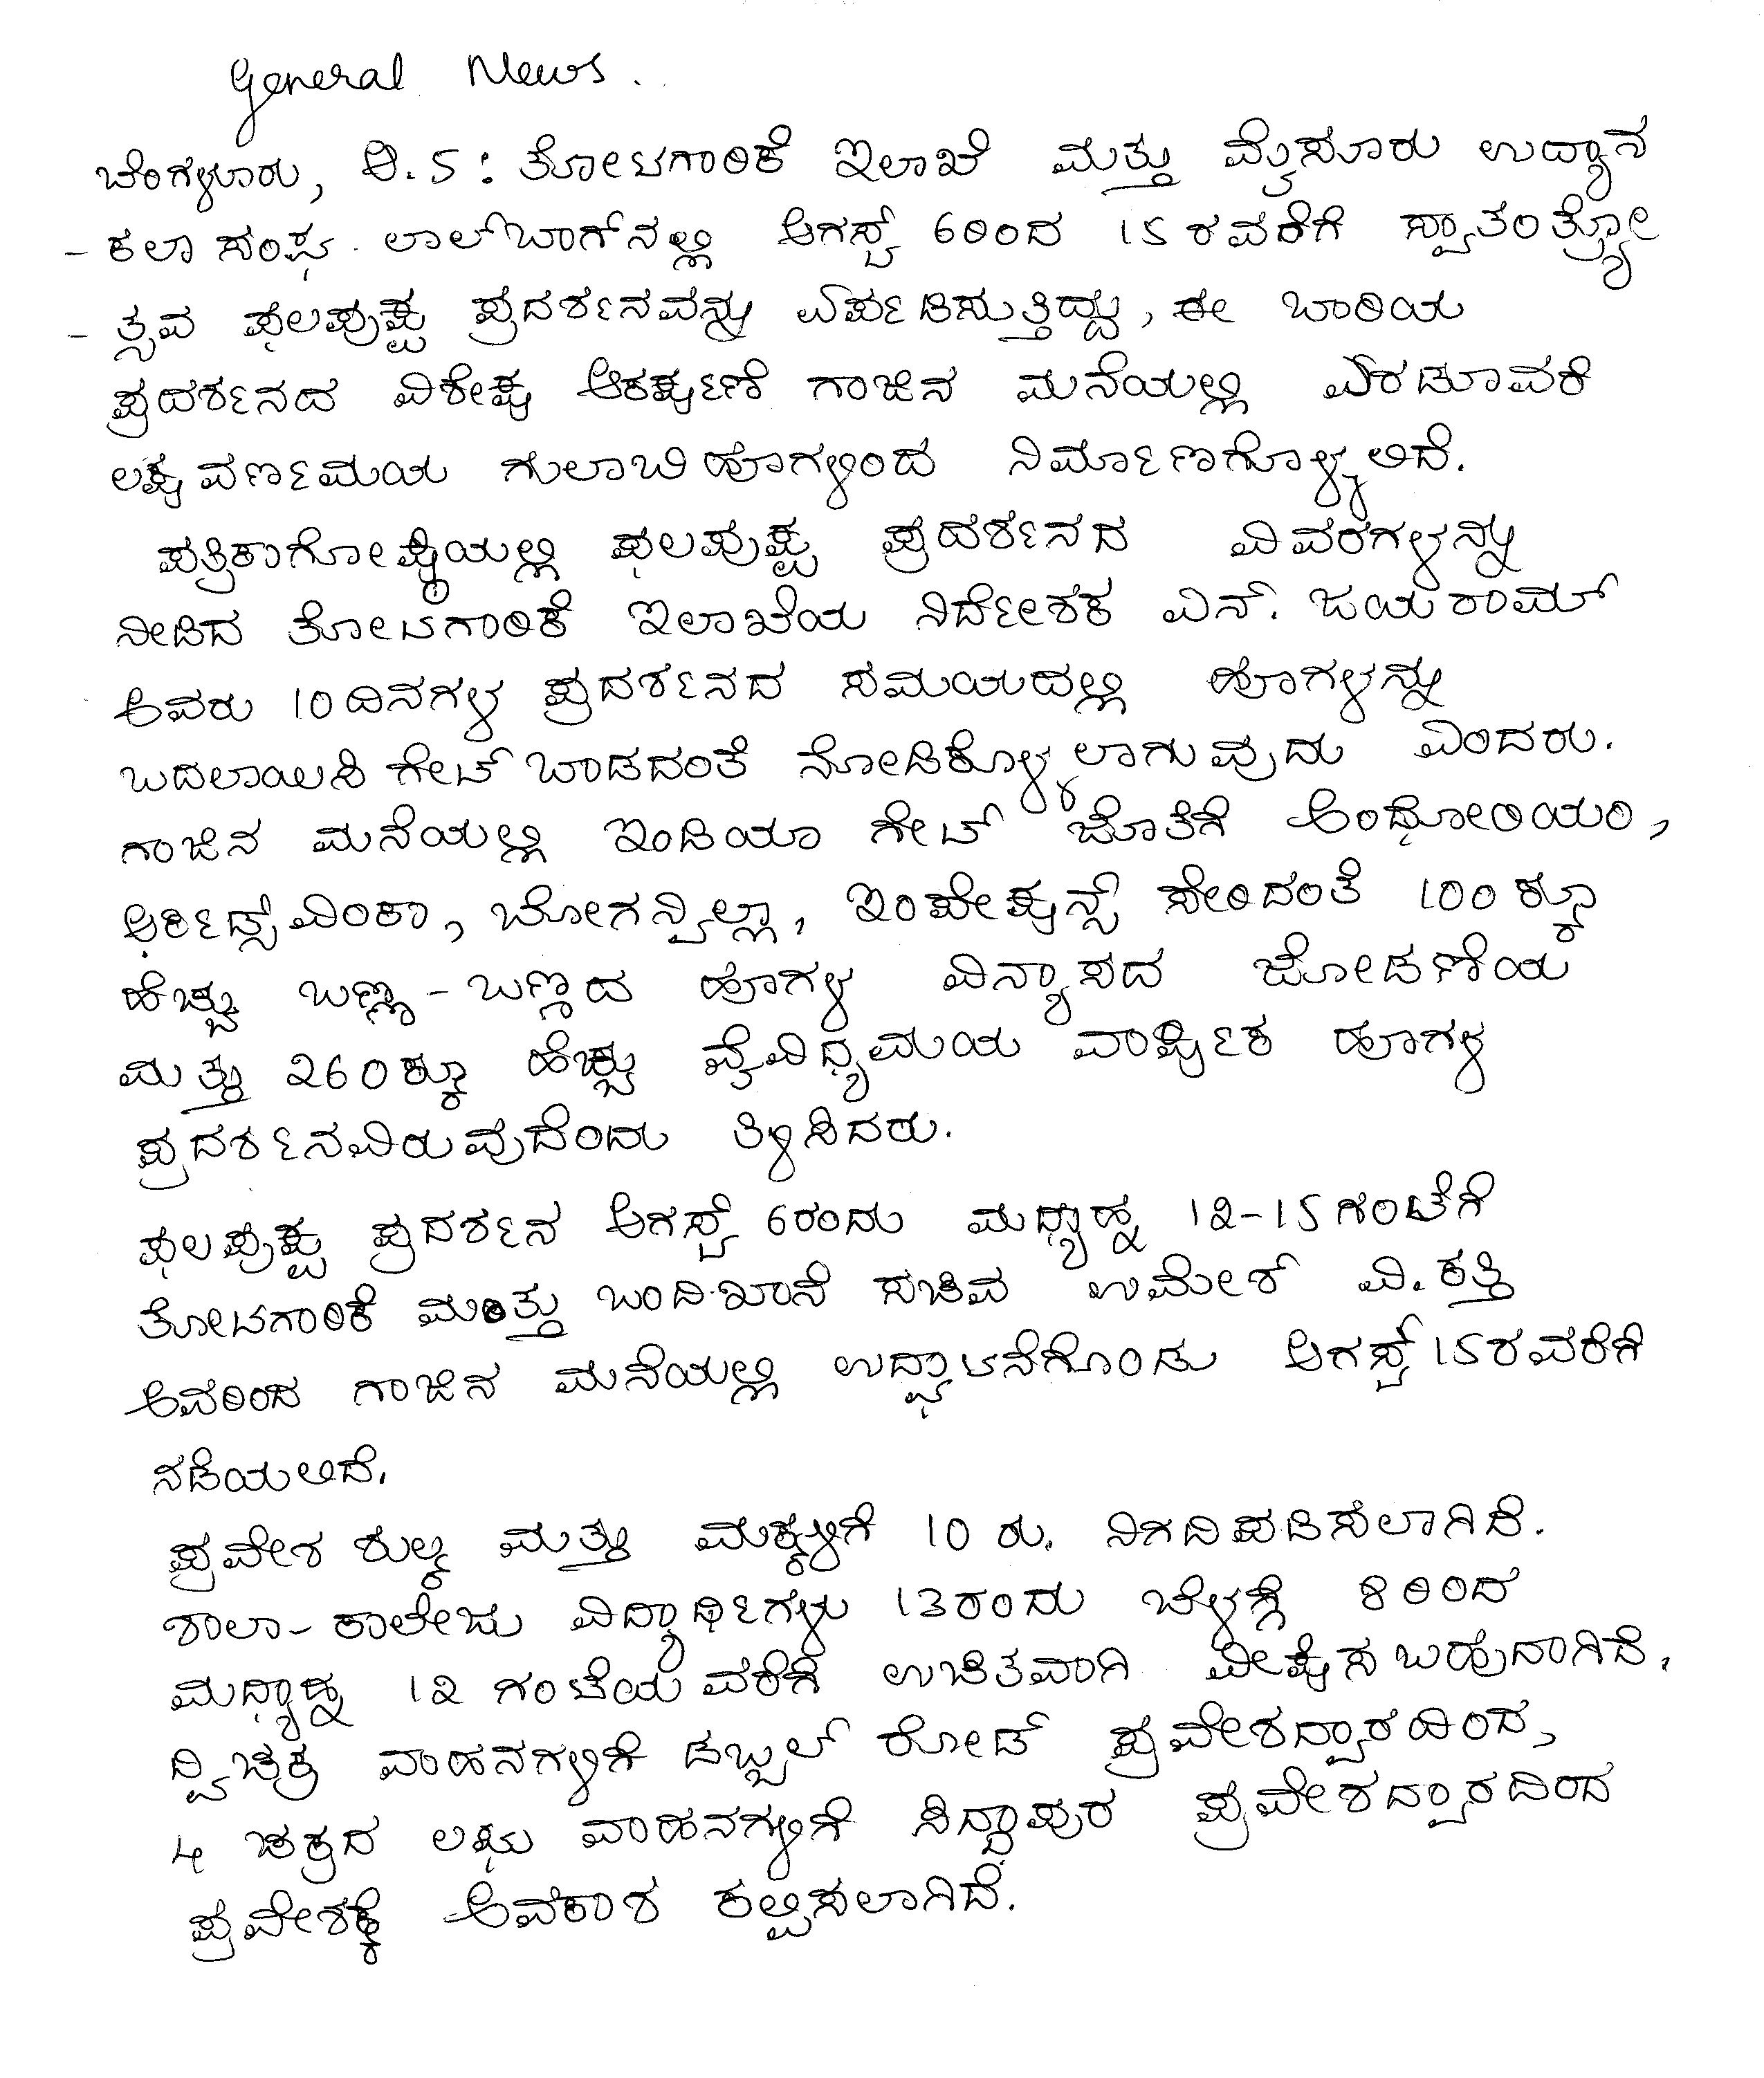 General News.
ಬೆಂಗಳೂರು, ಆ. 5 : ತೋಟಗಾರಿಕೆ ಇಲಾಖೆ ಮತ್ತು ಮೈಸೂರು ಉದ್ಯಾನ
- ಕಲಾ ಸಂಘ ಲಾಲ್‌ಬಾಗ್‌ನಲ್ಲಿ ಆಗಸ್ಟ್ 6ರಿಂದ 15 ರವರೆಗೆ ಸ್ವಾತಂತ್ರ್ಯೋ
- ತ್ಸವ ಫಲಪುಷ್ಪ ಪ್ರದರ್ಶನವನ್ನು ಏರ್ಪಡಿಸುತ್ತಿದ್ದು, ಈ ಬಾರಿಯ
ಪ್ರದರ್ಶನದ ವಿಶೇಷ ಆಕರ್ಷಣೆ ಗಾಜಿನ ಮನೆಯಲ್ಲಿ ಎರಡೂವರೆ
ಲಕ್ಷ ವರ್ಣಮಯ ಗುಲಾಬಿ ಹೂಗಳಿಂದ ನಿರ್ಮಾಣಗೊಳ್ಳಲಿದೆ.
ಪತ್ರಿಕಾಗೋಷ್ಠಿಯಲ್ಲಿ ಫಲಪುಷ್ಪ ಪ್ರದರ್ಶನದ ವಿವರಗಳನ್ನು
ನೀಡಿದ ತೋಟಗಾರಿಕೆ ಇಲಾಖೆಯ ನಿರ್ದೇಶಕ ಎನ್. ಜಯರಾಮ್
ಅವರು 10 ದಿನಗಳ ಪ್ರದರ್ಶನದ ಸಮಯದಲ್ಲಿ ಹೂಗಳನ್ನು
ಬದಲಾಯಿಸಿ ಗೇಟ್ ಬಾಡದಂತೆ ನೋಡಿಕೊಳ್ಳಲಾಗುವುದು ಎಂದರು.
ಗಾಜಿನ ಮನೆಯಲ್ಲಿ ಇಂಡಿಯಾ ಗೇಟ್ ಜೊತೆಗೆ ಅಂಥೋರಿಯಂ,
ಆರ್ಕಿಡ್ಸ್ ವಿಂಕಾ, ಬೋಗನ್ವಿಲ್ಲಾ, ಇಂಪೇಷನ್ಸ್ ಸೇರಿದಂತೆ 100 ಕ್ಕೂ
ಹೆಚ್ಚು ಬಣ್ಣ - ಬಣ್ಣದ ಹೂಗಳ ವಿನ್ಯಾಸದ ಜೋಡಣೆಯ
ಮತ್ತು 260ಕ್ಕೂ ಹೆಚ್ಚು ವೈವಿಧ್ಯಮಯ ವಾರ್ಷಿಕ ಹೂಗಳ
ಪ್ರದರ್ಶನವಿರುವುದೆಂದು ತಿಳಿಸಿದರು.
ಫಲಪುಷ್ಪ ಪ್ರದರ್ಶನ ಆಗಸ್ಟ್ 6ರಂದು ಮಧ್ಯಾಹ್ನ 12-15 ಗಂಟೆಗೆ
ತೋಟಗಾರಿಕೆ ಮತ್ತು ಬಂದಿಖಾನೆ ಸಚಿವ ಉಮೇಶ್ ವಿ. ಕತ್ತಿ
ಅವರಿಂದ ಗಾಜಿನ ಮನೆಯಲ್ಲಿ ಉದ್ಘಾಟನೆಗೊಂಡು ಆಗಸ್ಟ್ 15ರವರೆಗೆ
ನಡೆಯಲಿದೆ.
ಪ್ರವೇಶ ಶುಲ್ಕ ಮತ್ತು ಮಕ್ಕಳಿಗೆ 10 ರು. ನಿಗದಿಪಡಿಸಲಾಗಿದೆ.
ಶಾಲಾ - ಕಾಲೇಜು ವಿದ್ಯಾರ್ಥಿಗಳು 13ರಂದು ಬೆಳಗ್ಗೆ 8ರಿಂದ
ಮಧ್ಯಾಹ್ನ 12 ಗಂಟೆಯವರೆಗೆ ಉಚಿತವಾಗಿ ವೀಕ್ಷಿಸಬಹುದಾಗಿದೆ.
ದ್ವಿಚಕ್ರ ವಾಹನಗಳಿಗೆ ಡಬ್ಬಲ್ ರೋಡ್ ಪ್ರವೇಶದ್ವಾರದಿಂದ,
4 ಚಕ್ರದ ಲಘು ವಾಹನಗಳಿಗೆ ಸಿದ್ಧಾಪುರ ಪ್ರವೇಶದ್ವಾರದಿಂದ
ಪ್ರವೇಶಕ್ಕೆ ಅವಕಾಶ ಕಲ್ಪಿಸಲಾಗಿದೆ.